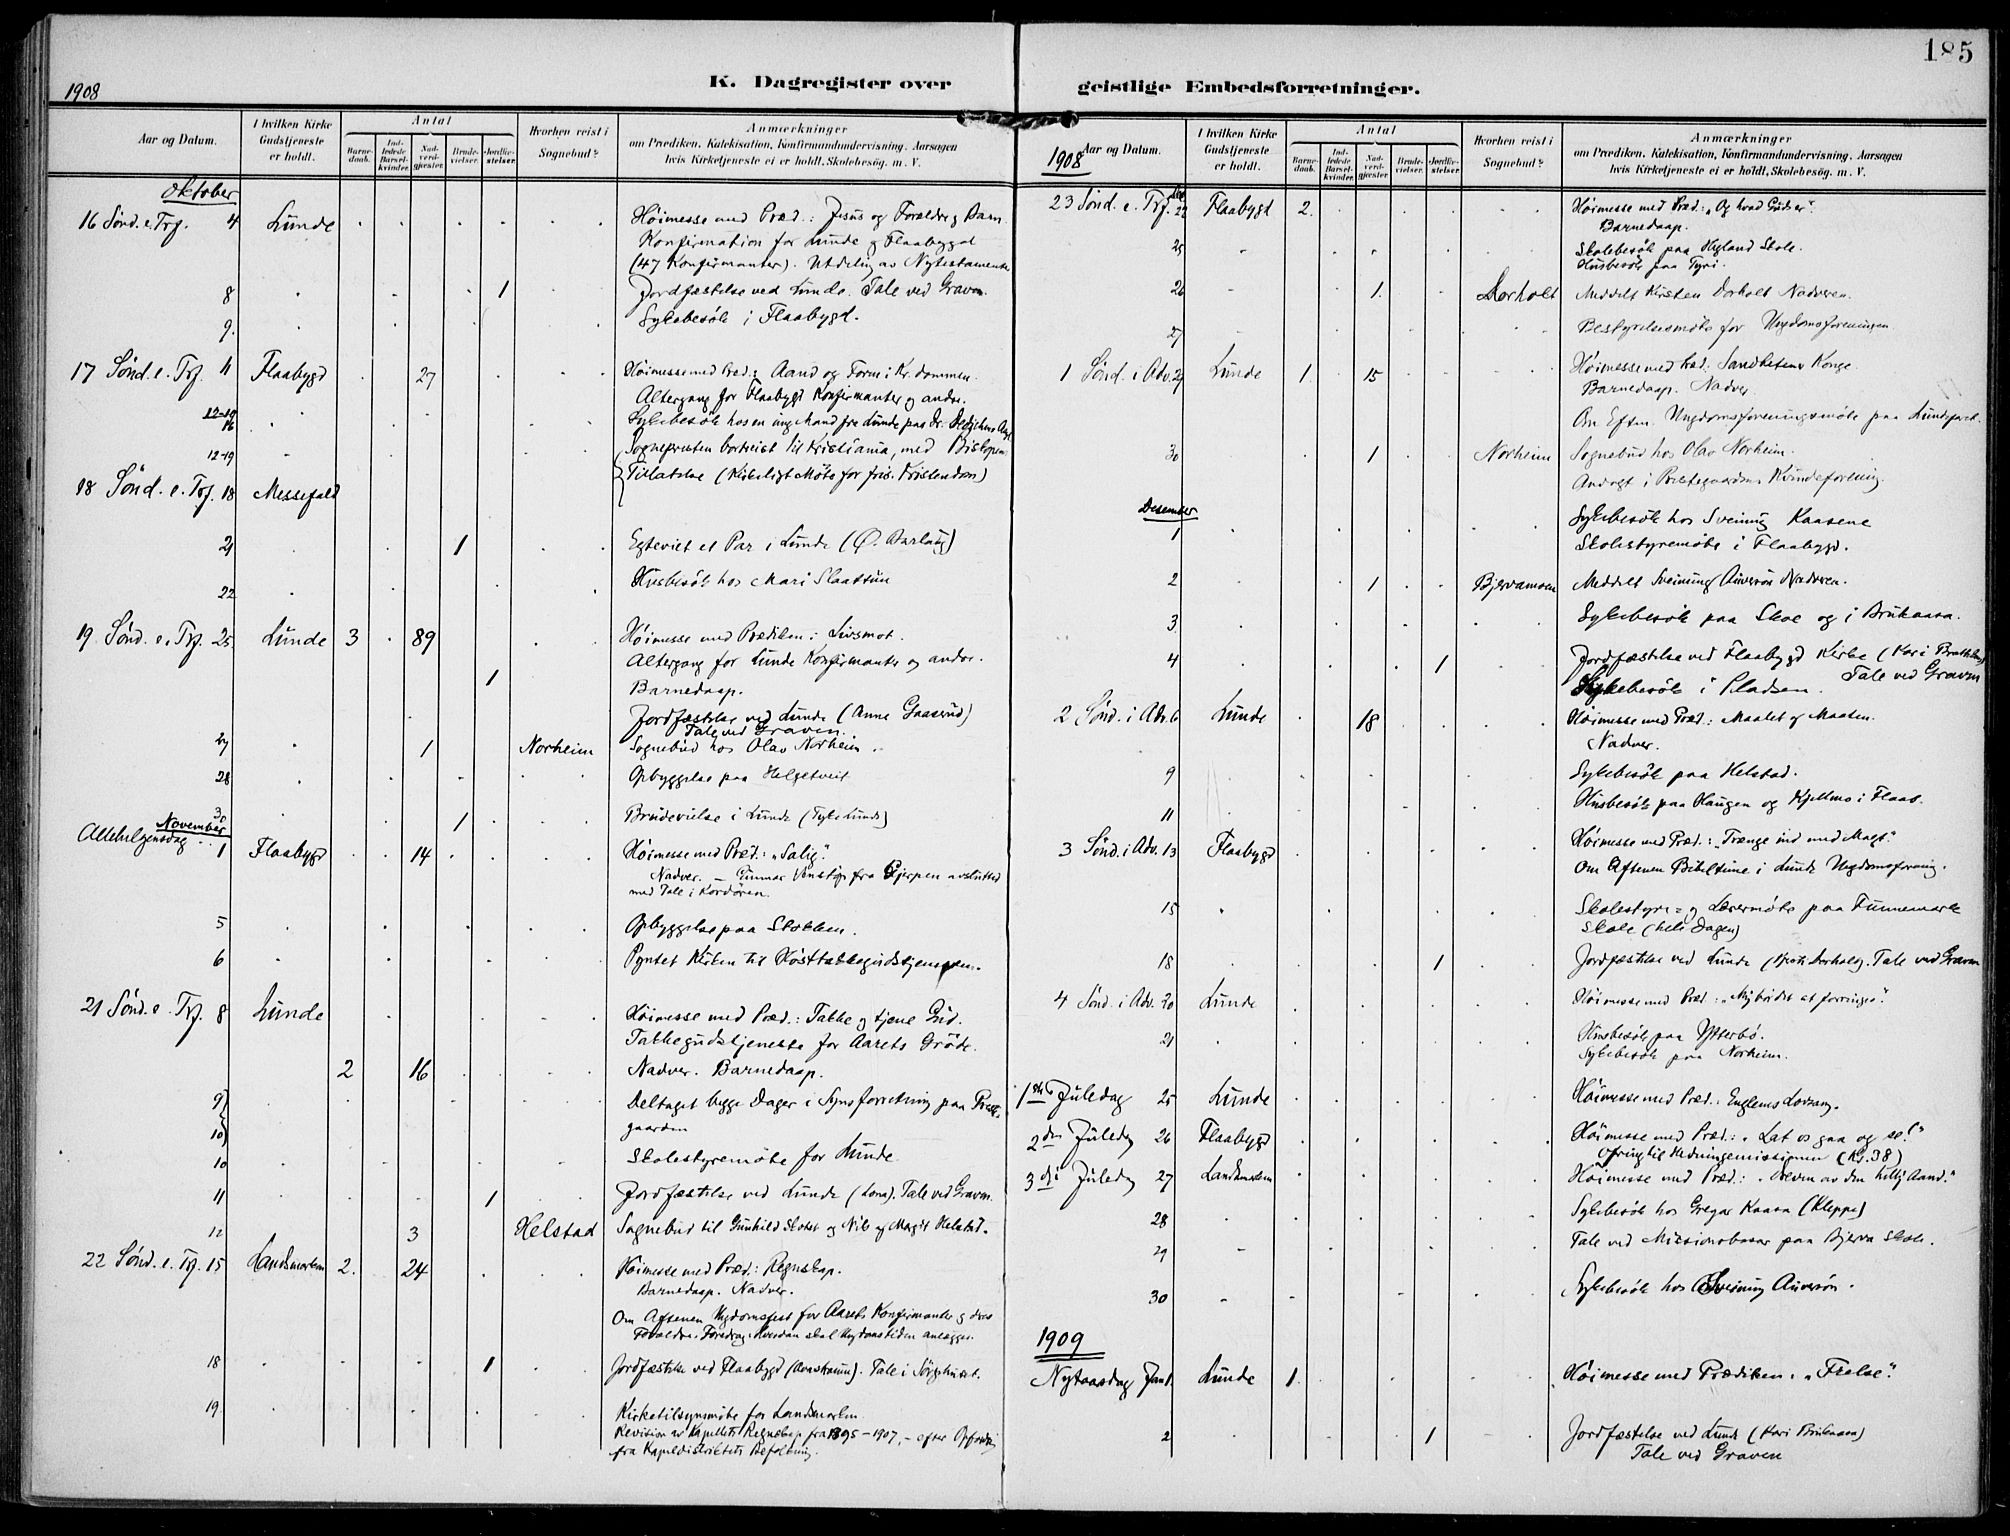 185
1908
K. Dagregister over
geistlige Embedsforretninger.
Aar og Datum.
I hvilken Kirke Gudstjeneste er holdt.
Antal
Barnedaab.
Indledede Barselkvinder.
Nadverdgjester.
Brudevielser.
Jordfæstelser.
Hvorhen reist i Sognebud?
Anmærkninger
om Prædiken, Katekisation, Konfirmandundervisning, Aarsagen
hvis Kirketjeneste ei er holdt, Skolebesög. m. V.
Oktober
16 Sønd. e. Trf. 4 Lunde Høimesse med Præd.: Jesus og Forældre og Barn
Konfirmation for Lunde og Flaabygd
(47 Konfirmanter). Utdeling av Nytestamenter
8 1 Jordfæstelse ved Lunde. Tale ved Graven.
9. Sykebesøk i Flaabygd.
17 Sønd. e. Trf. 11 Flaabygd 27 Høimesse med Præd.: Aand og Form i Kr.dommen.
Altergang for Flaabygd Konfirmanter og andre.
Sykebesøk hos en ung Mand fra Lunde paa
12-19 Sognepresten bortreist til Kristiania, med Biskopens
18 Sønd. e. Trf. 18 Messefald Tillatelse (Kirkeligt Møte for fris. Kristendom)
21 1 Egteviet et Par i Lunde
22 Husbesøk hos Mari Slaattun
19. Sønd. e. Trf. 25 Lunde 3 89 Høimesse med Prædiken: Livsmot.
Altergang for Lunde Konfirmanter og andre.
1 Barnedaap.
Jordfæstelse ved Lunde (Anne Gaasrud)
Tale ved Graven.
27 1 Norheim Sognebud hos Olav Norheim
28 Opbyggelse paa Helgetveit
Brudevielse i Lunde
1
November
Allehelgensdag 1 Flaabygd 14 Høimesse med Præd.: „Salig“.
Nadver. – Gunnar Venstøp fra Gjerpen avsluttet
med Tale i Kordøren.
5 Opbyggelse paa Stokken.
6 Pyntet Kirken til Høsttakkegudstjenesten.
21 Sønd. e. Trf. 8 Lunde Høimesse med Præd.: Takke og tjene Gud.
Takkegudstjeneste for Aarets Grøde.
2 16 Nadver. Barnedaap.
9 Deltaget begge Dager i Synsforretning paa Prest-
10 gaarden
10 Skolestyremøte for Lunde
11 1 Jordfæstelse ved Lunde. Tale ved Graven.
12 3 Helstad Sognebud til Gunhild og Nils og Magit Helstad.
22 Sønd. e. Trf. 15 Landsmarken 2. 24 Høimesse med Præd.: Regnskap.
Barnedaap. Nadver.
Om Aftenen Ungdomsfest for Aarets Konfirmanter og deres
Forældre. Foredrag: Hvordan skal Ungdomstiden anlægges.
18 1 Jordfæstelse ved Flaabygd. Tale i Sørgehuset.
19. Kirketilsynsmøte for Landsmarken
Revision av Kapellets Regnskap fra 1895–1907, – efter Opfordring
fra Kapeldistriktets Befolkning.
1908
Aar og Datum.
I hvilken Kirke Gudstjeneste er holdt.
Antal
Barnedaab.
Indledede Barselkvinder.
Nadverdgjester.
Brudevielser.
Jordfæstelser.
Hvorhen reist i Sognebud?
Anmærkninger
om Prædiken, Katekisation, Konfirmandundervisning, Aarsagen
hvis Kirketjeneste ei er holdt, Skolebesög. m. V.
23 Sønd. e. Trf. 22 Flaabygd 2. Høimesse med Præd.: „Og hvad Guds er“.
Barnedaap.
25 Skolebesøk paa Hegland Skole.
Husbesøk paa Tyri.
26 1. Dorholt Meddelt Kirsten Dorholt Nadveren.
27 Bestyrelsesmøte for Ungdomsforeningen
1 Sønd. i Adv. 29 Lunde 1. 15 Høimesse med Præd.: Sandhetens Konge
Barnedaap. Nadver
Om Eftm. Ungdomsforeningsmøte paa
30 1 Norheim Sognebud hos Olav Norheim.
Andagt i Prestegaardens Kvindeforening.
Desember
1 Sykebesøk hos Sveinung Kaasene
Skolestyremøte i Flaabygd.
2 1 Bjervamoen Meddelt Sveinung Auversøn Nadveren.
3 Sykebesøk paa Skoe og i Brukaasa.
4 1 Jordfæstelse ved Flaabygd Kirke
Tale ved Graven
Sykebesøk i Pladsen.
2 Sønd. i Adv. 6 Lunde 18 Høimesse med Præd.: Maalet og Maaten.
Nadver.
9 Sykebesøk paa Helstad.
11 Husbesøk paa Haugen og Kjellmo i Flaab.
3 Sønd. i Adv. 13 Flaabygd Høimesse med Præd.: „Trænge ind med Magt“
Om Aftenen Bibeltime i Lunde Ungdomsforening.
15 Skolestyre- og Lærermøte paa Tunnemark
Skole (hele Dagen)
18 1 Jordfæstelse ved Lunde. Tale ved Graven
4 Sønd. i Adv. 20 Lunde Høimesse med Præd.: „Mig bør det at forringes“.
21 Husbesøk paa Ytterbø.
Sykebesøk paa Norheim.
1ste Juledag 25 Lunde Høimesse med Præd.: Englenes Lovsang.
2den Juledag 26 Flaabygd Høimesse med Præd.: „Lat os gaa og se!“
Ofring til Hedningemissionen (Kr. 38)
3dje Juledag 27 Landsmarken Høimesse med Præd.: „Dreven av den hellig Aand.“
28 Sykebesøk hos Gregar Kaasa (Kleppe)
29 Tale ved Missionsbasar paa Bjerva Skole.
30 Sykebesøk hos Sveinung Auversøn.
1909
Nytaarsdag Jan 1. Lunde 1. Høimesse med Prædiken: „Frelse“.
2 1 Jordfæstelse ved Lunde (Kari Brukaasa)
Tale ved Graven